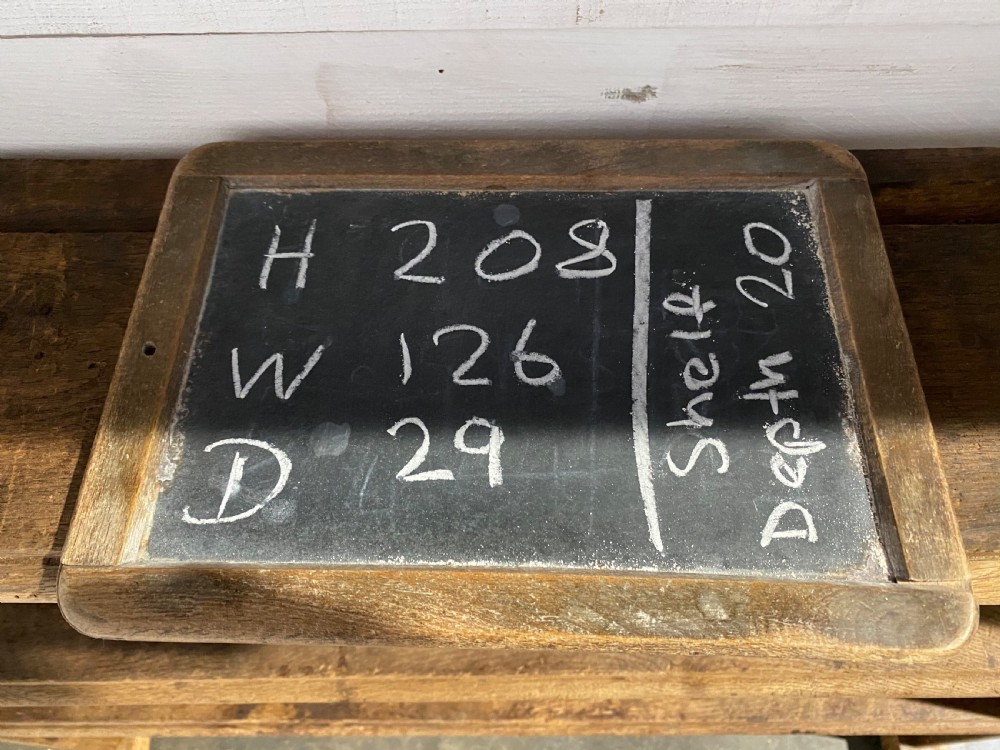 H 208
W 126
D 29
Shelf
Depth 20